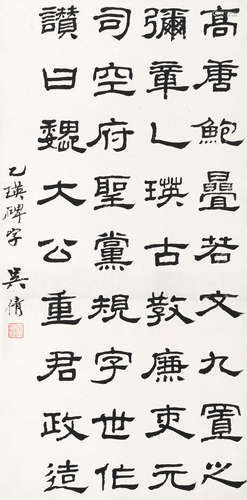 高唐鮑疊若文九置之
彌章乙瑛古教廉吏元
司空府聖黨規字世作
讃曰巍大公重君政造
乙瑛碑字 吳倩